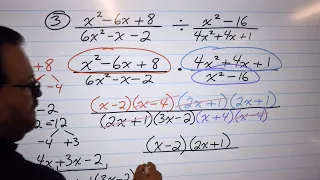 ③ x²-6x+8 / 6x²-x-2 ÷ x²-16 / 4x²+4x+1
x²-6x+8 / 6x²-x-2 · 4x²+4x+1 / x²-16
+8
-4
(x-2)(x-4)(2x+1)(2x+1) / (2x+1)(3x-2)(x+4)(x-4)
-2
=12
-4 +3
(x-2)(2x+1)
4x+3x-2